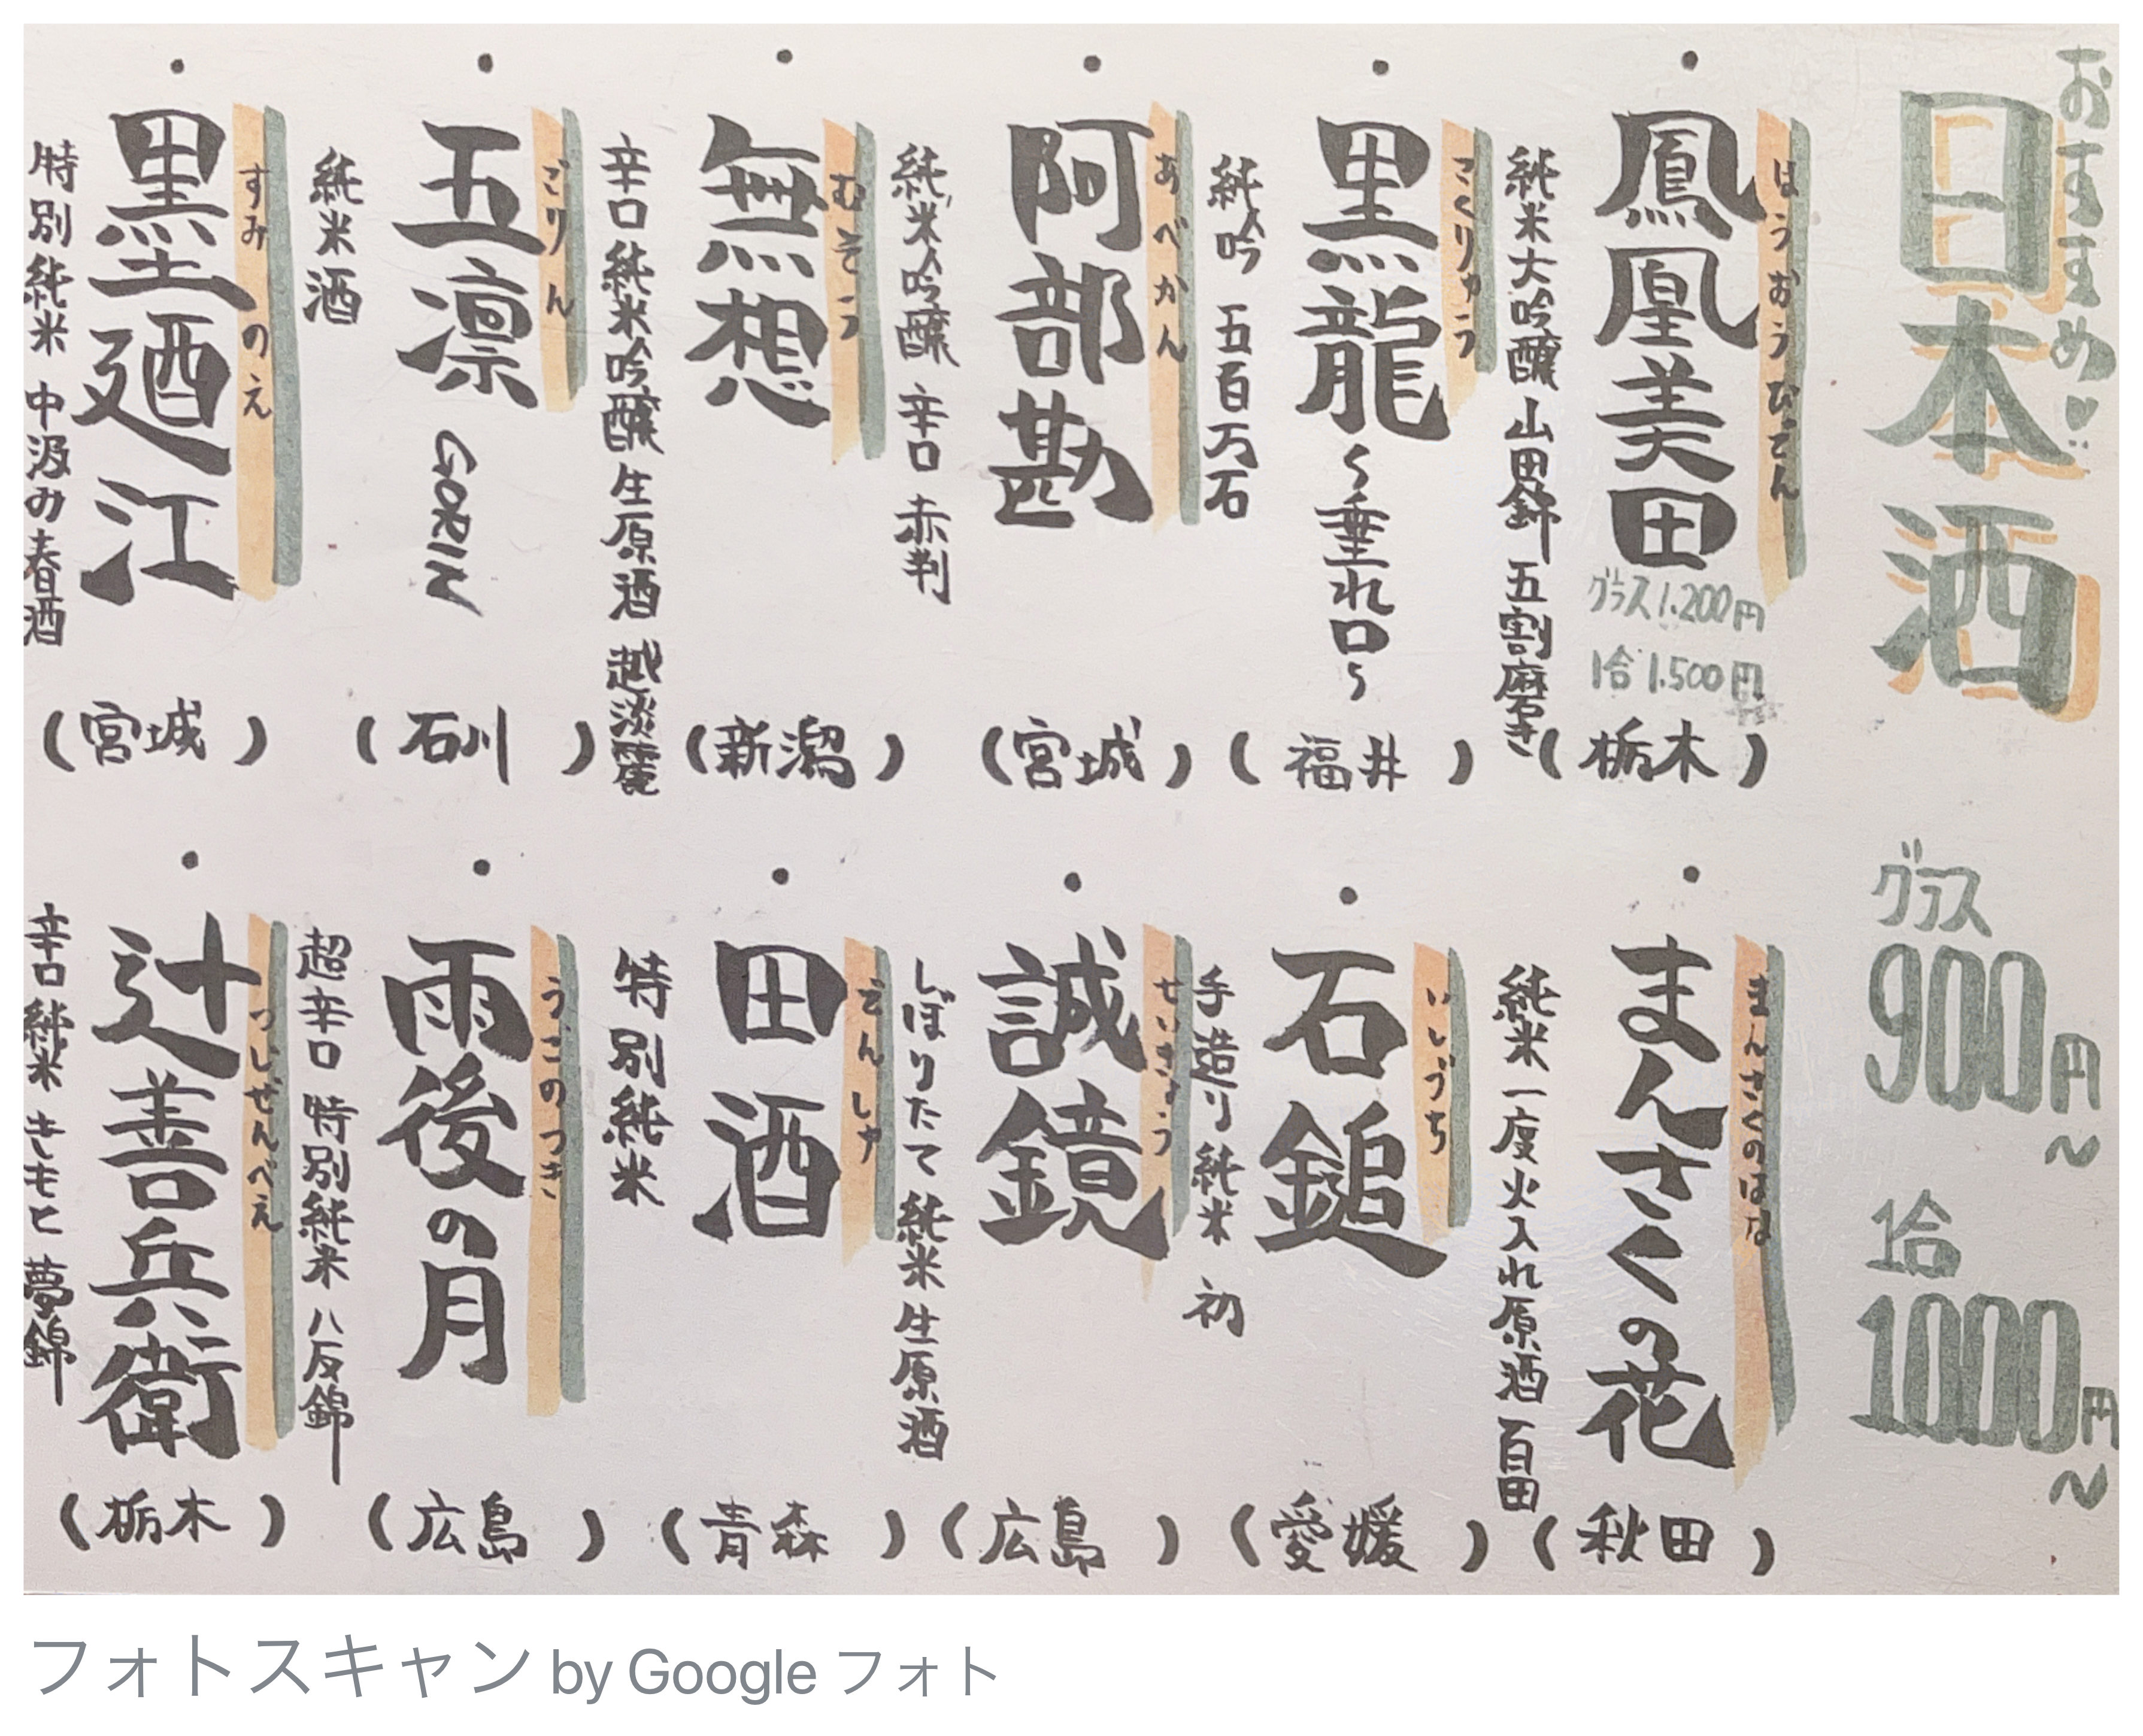 おすすめ!!
日本酒
グラス
900円~
1合
1000円~
・鳳凰美田
ほうおうびでん
グラス1.200円
1合1.500円
(栃木)
純米大吟醸 山田錦 五割磨き
・黒龍~垂れ口~
こくりゅう
(福井)
純吟 五百万石
・阿部勘
あべかん
(宮城)
純米吟醸 辛口 赤判
・無想
むそう
(新潟)
辛口純米吟醸生原酒 越淡麗
・五凛
ごりん
GORIN
(石川)
純米酒
・墨廼江
すみのえ
(宮城)
特別純米 中汲み春酒
・まんさくの花
まんさくのはな
(秋田)
純米一度火入れ原酒 百田
・石鎚
いしづち
(愛媛)
手造り純米 初
・誠鏡
せいきょう
(広島)
しぼりたて純米生原酒
・田酒
でんしゅ
(青森)
特別純米
・雨後の月
うごのつき
(広島)
超辛口 特別純米 八反錦
・辻善兵衛
つじぜんべえ
(栃木)
辛口純米 きもと 夢錦
フォトスキャン by Google フォト